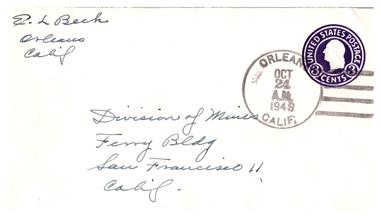 E. L Beck
Orleans
Calif
UNITED STATES POSTAGE
3 CENTS 3
ORLEANS
OCT
24
A.M.
1949
CALIF.
Division of Mines
Ferry Bldg
San Francisco 11
Calif.